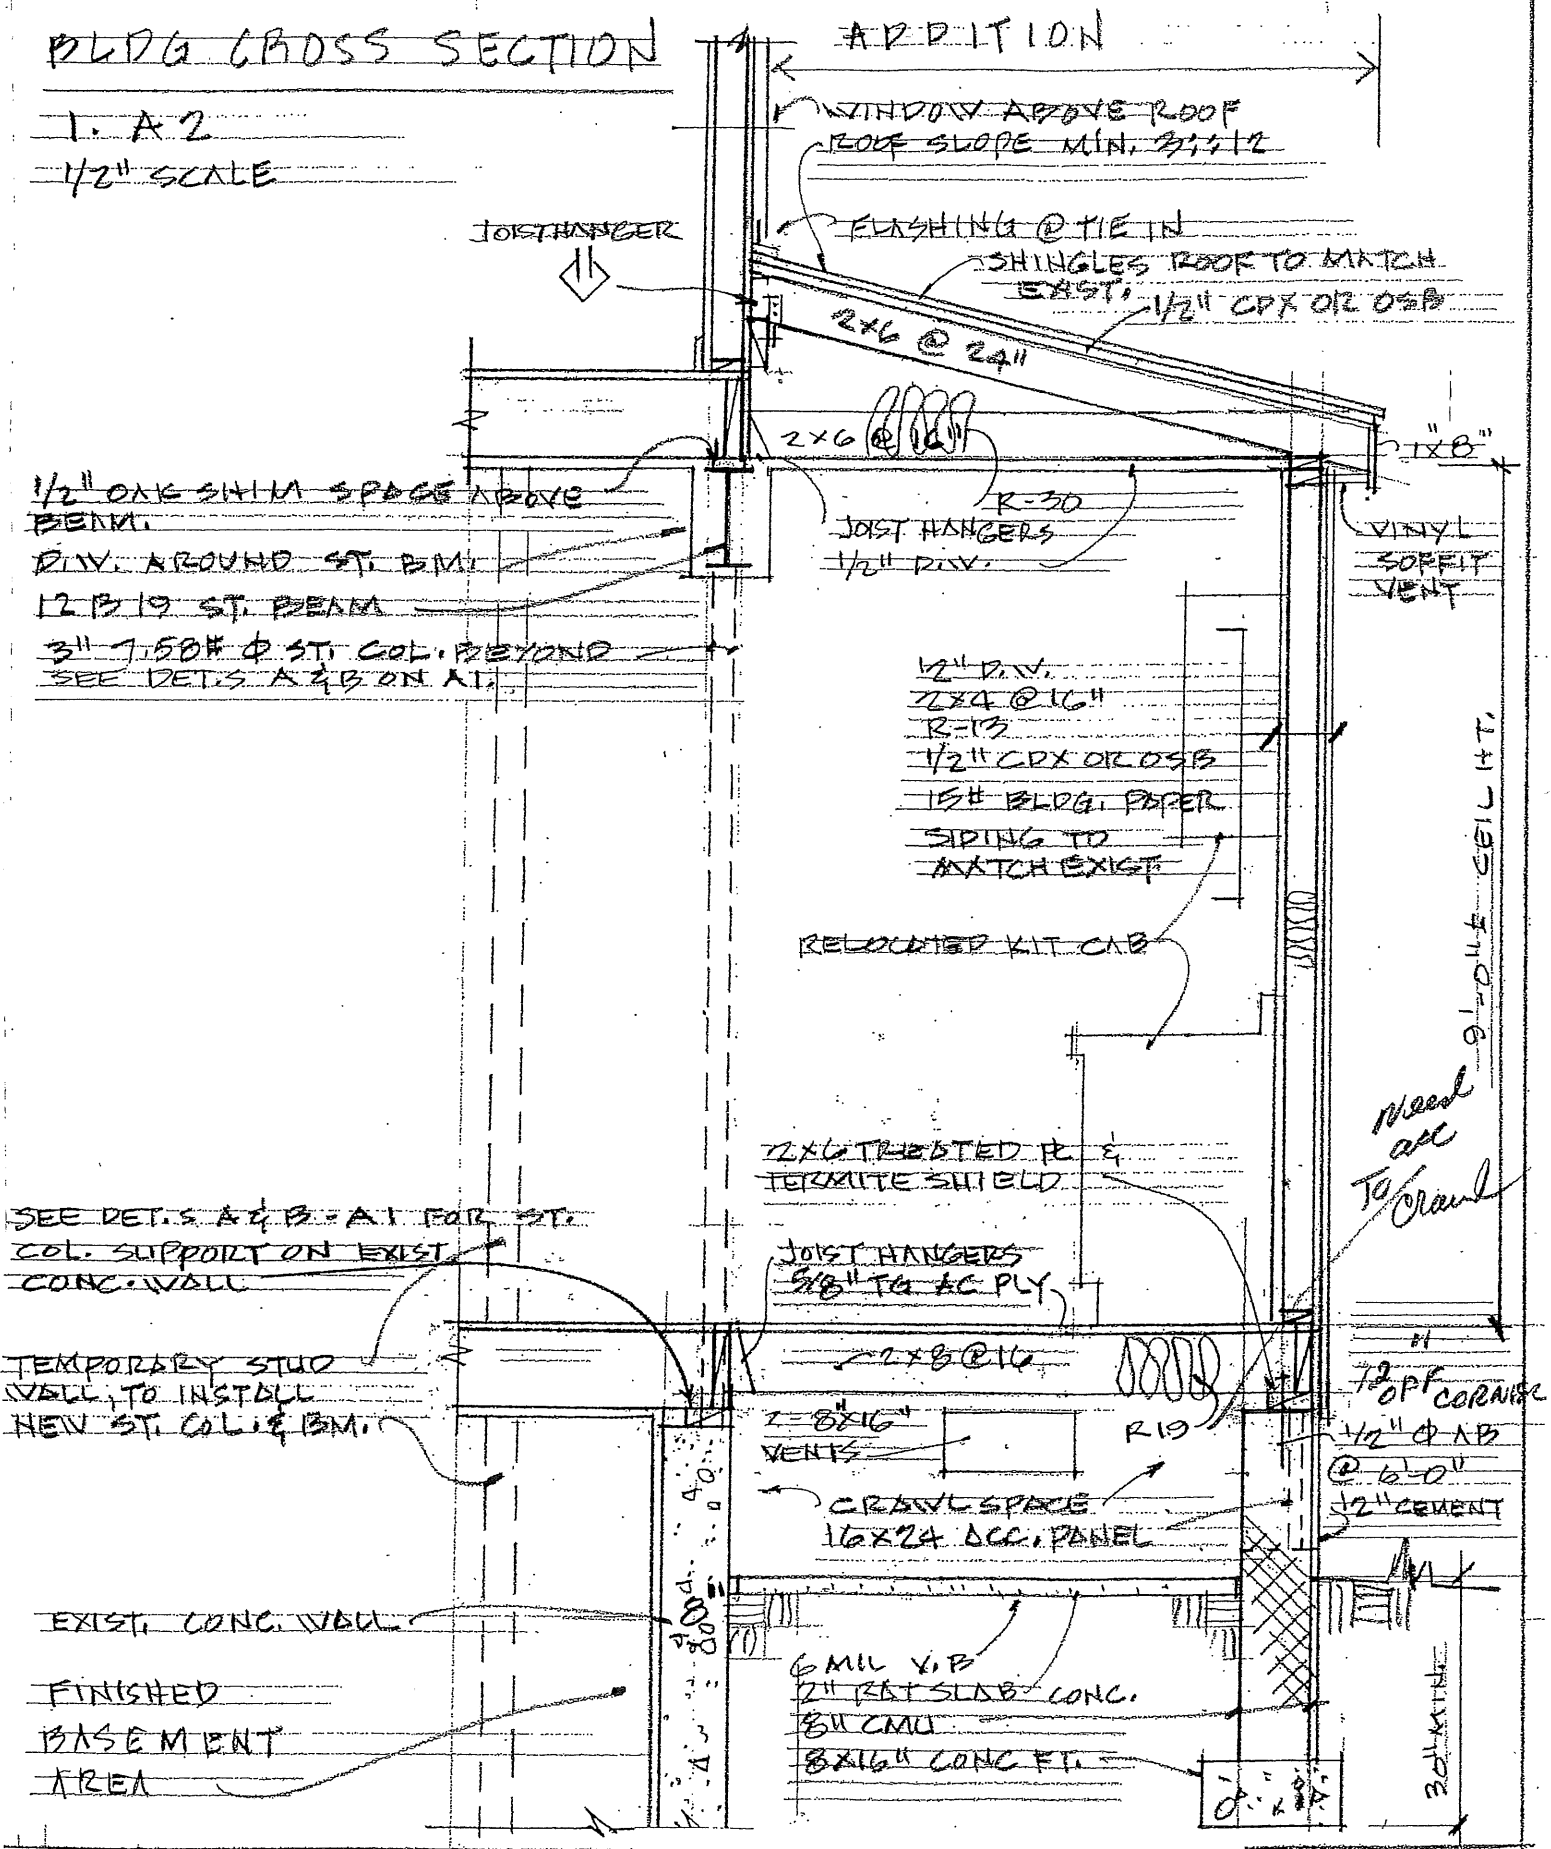 BLDG CROSS SECTION
1. A2
1/2" SCALE
ADDITION
WINDOW ABOVE ROOF
ROOF SLOPE MIN. 3::12
JOISTHANGER
FLASHING @ TIE IN
SHINGLES ROOF TO MATCH
EXIST.
1/2" CDX OR OSB
2X6 @ 24"
2X6 @ 16"
1X8"
1/2" OAK SHIM SPACE ABOVE
BEAM.
D.W. AROUND ST. BM.
12 B 19 ST. BEAM
3" 7.58# Φ ST. COL. BEYOND
SEE DET.S A & B ON A1.
R-30
JOIST HANGERS
1/2" D.W.
VINYL
SOFFIT
VENT
1/2" D.W.
2X4 @ 16"
R-13
1/2" CDX OR OSB
15# BLDG. PAPER
SIDING TO
MATCH EXIST.
9'-0"± CEIL HT.
RELOCATED KIT CAB
Need
To
Crawl
2X6 TREATED PL &
TERMITE SHIELD
SEE DET.S A & B - A1 FOR ST.
COL. SUPPORT ON EXIST
CONC. WALL
JOIST HANGERS
5/8" TG AC PLY
2X8 @ 16
TEMPORARY STUD
WALL, TO INSTALL
NEW ST. COL. & BM.
2-8"X16"
VENTS
R19
12" OFF CORNER
1/2" Φ AB
@ 6'-0"
1/2" CEMENT
CRAWL SPACE
16X24 ACC. PANEL
EXIST. CONC. WALL
FINISHED
BASEMENT
AREA
6 MIL V.B
2" RAT SLAB CONC.
8" CMU
8X16" CONC FT.
30" MIN.